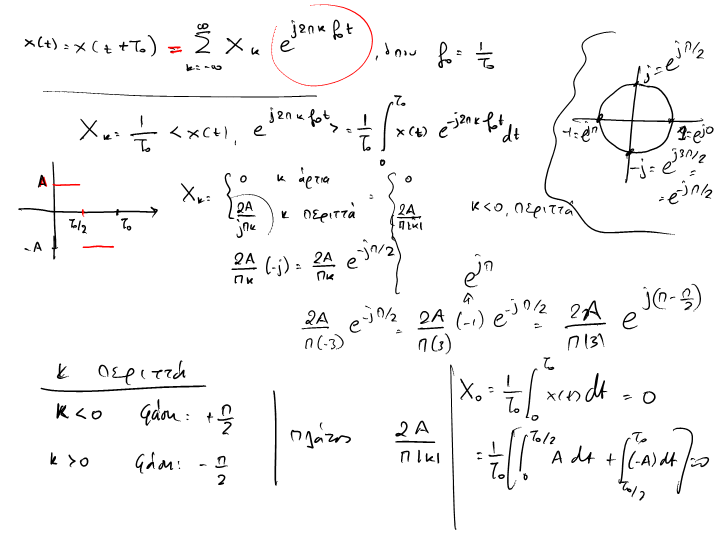 x(t) = x(t + T₀) = Σ_{k=-∞}^{∞} X_k e^{j2πk f₀t}, όπου f₀ = 1/T₀
X_k = 1/T₀ <x(t), e^{j2πk f₀t}> = 1/T₀ ∫_0^{T₀} x(t) e^{-j2πk f₀t} dt
j = e^{jπ/2}
-1 = e^{jπ}
1 = e^{j0}
-j = e^{j3π/2} =
= e^{-jπ/2}
A
T₀/2
T₀
-A
X_k = { 0 k άρτια = { 0
2A/jπk k περιττά 2A/π|k|
k<0, περιττά
2A/πk (-j) = 2A/πk e^{-jπ/2}
e^{jπ}
2A/π(-3) e^{-jπ/2} = 2A/π(3) (-1) e^{-jπ/2} = 2A/π|3| e^{j(π-π/2)}
k περιττά
k<0 φάση: +π/2
k>0 φάση: -π/2
πλάτος 2A/π|k|
X₀ = 1/T₀ ∫_0^{T₀} x(t) dt = 0
= 1/T₀ [∫_0^{T₀/2} A dt + ∫_{T₀/2}^{T₀} (-A) dt] = 0